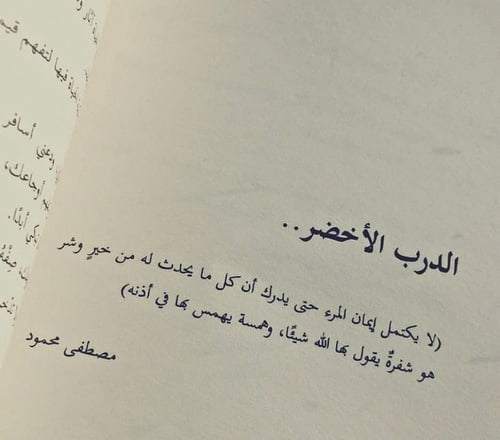 الدرب الأخضر..
(لا يكتمل إيمان المرء حتى يدرك أن كل ما يحدث له من خيرٍ وشر
هو شفرةٌ يقول بها الله شيئًا، وهمسة يهمس بها في أذنه)
مصطفى محمود
فيها لتفهم قيم
ودعني أسافر
أوجاعك،
أبدًا.